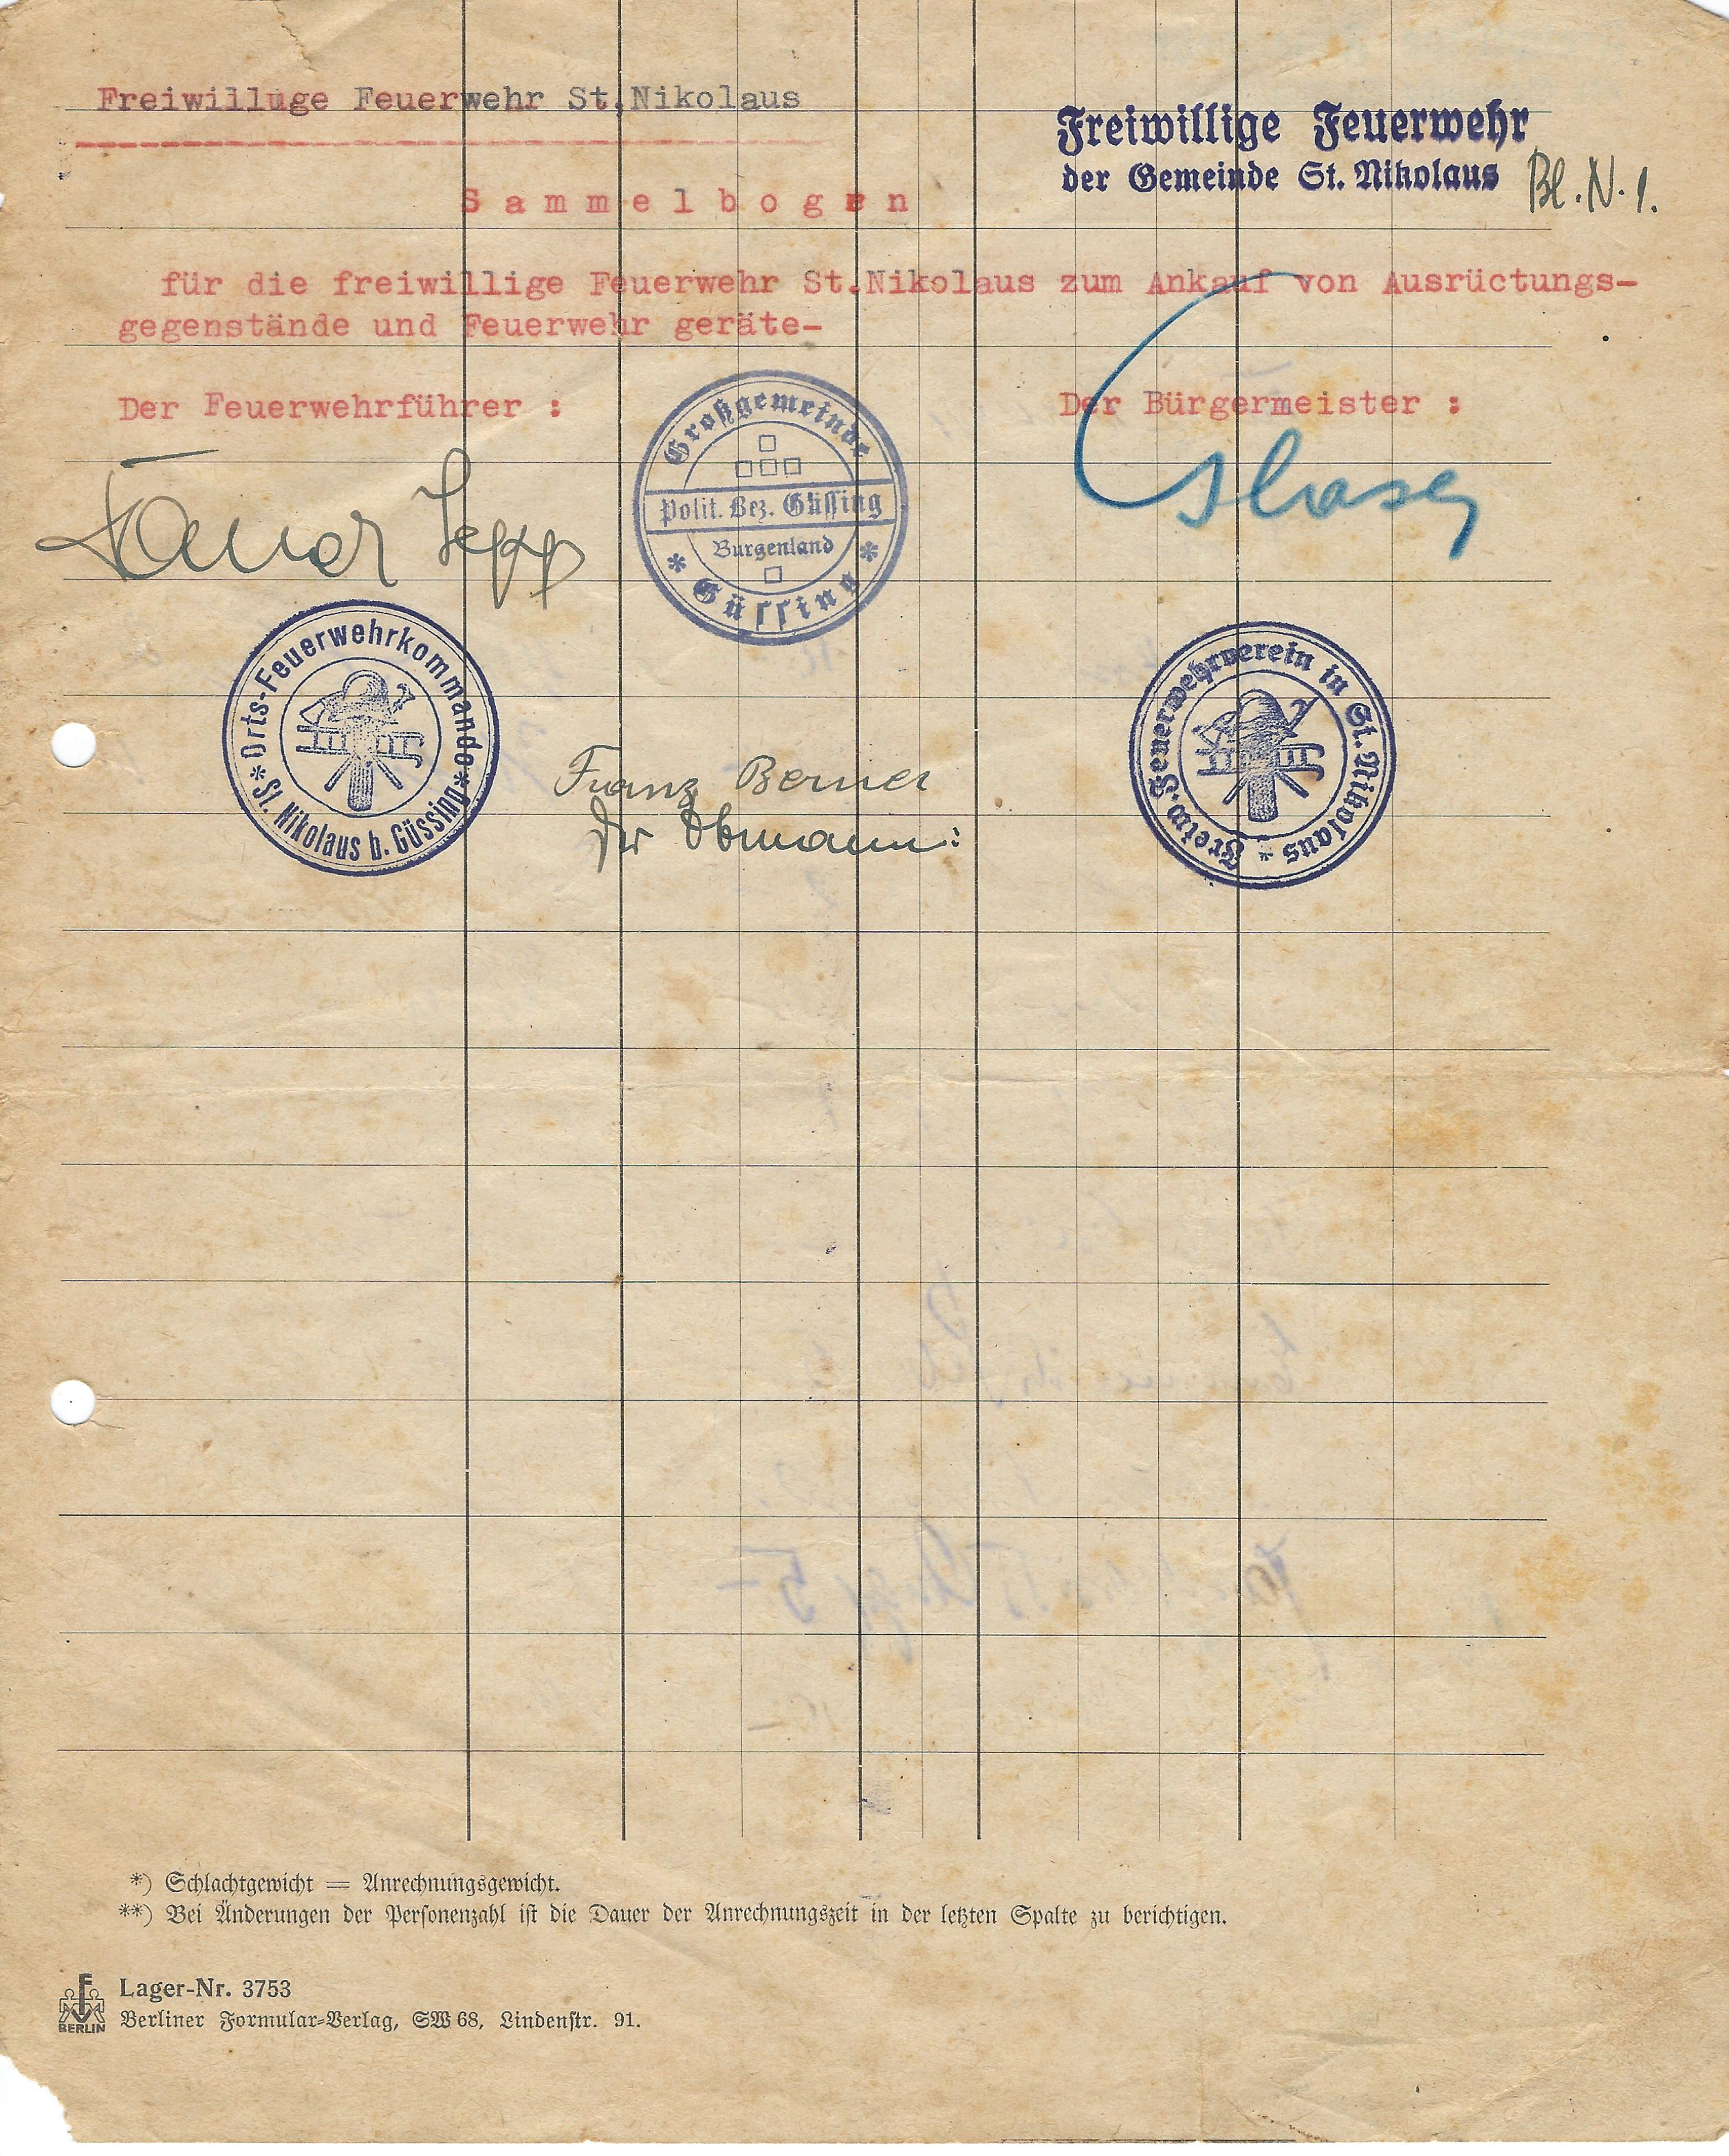 Freiwilluge Feuerwehr St.Nikolaus
Freiwillige Feuerwehr
der Gemeinde St. Nikolaus
Bl. N. 1.
Sammelbogen
für die freiwillige Feuerwehr St.Nikolaus zum Ankauf von Ausrüctungs-
gegenstände und Feuerwehr geräte-
Der Feuerwehrführer :
Der Bürgermeister :
Großgemeinde
Polit. Bez. Güssing
Burgenland
* Güssing *
Sepp
Orts-Feuerwehrkommando
* St. Nikolaus b. Güssing *
Freiw. Feuerwehrverein in St. Nikolaus *
Franz Berner
Der Obmann:
*) Schlachtgewicht = Anrechnungsgewicht.
**) Bei Änderungen der Personenzahl ist die Dauer der Anrechnungszeit in der letzten Spalte zu berichtigen.
Lager-Nr. 3753
BERLIN
Berliner Formular-Verlag, SW 68, Lindenstr. 91.